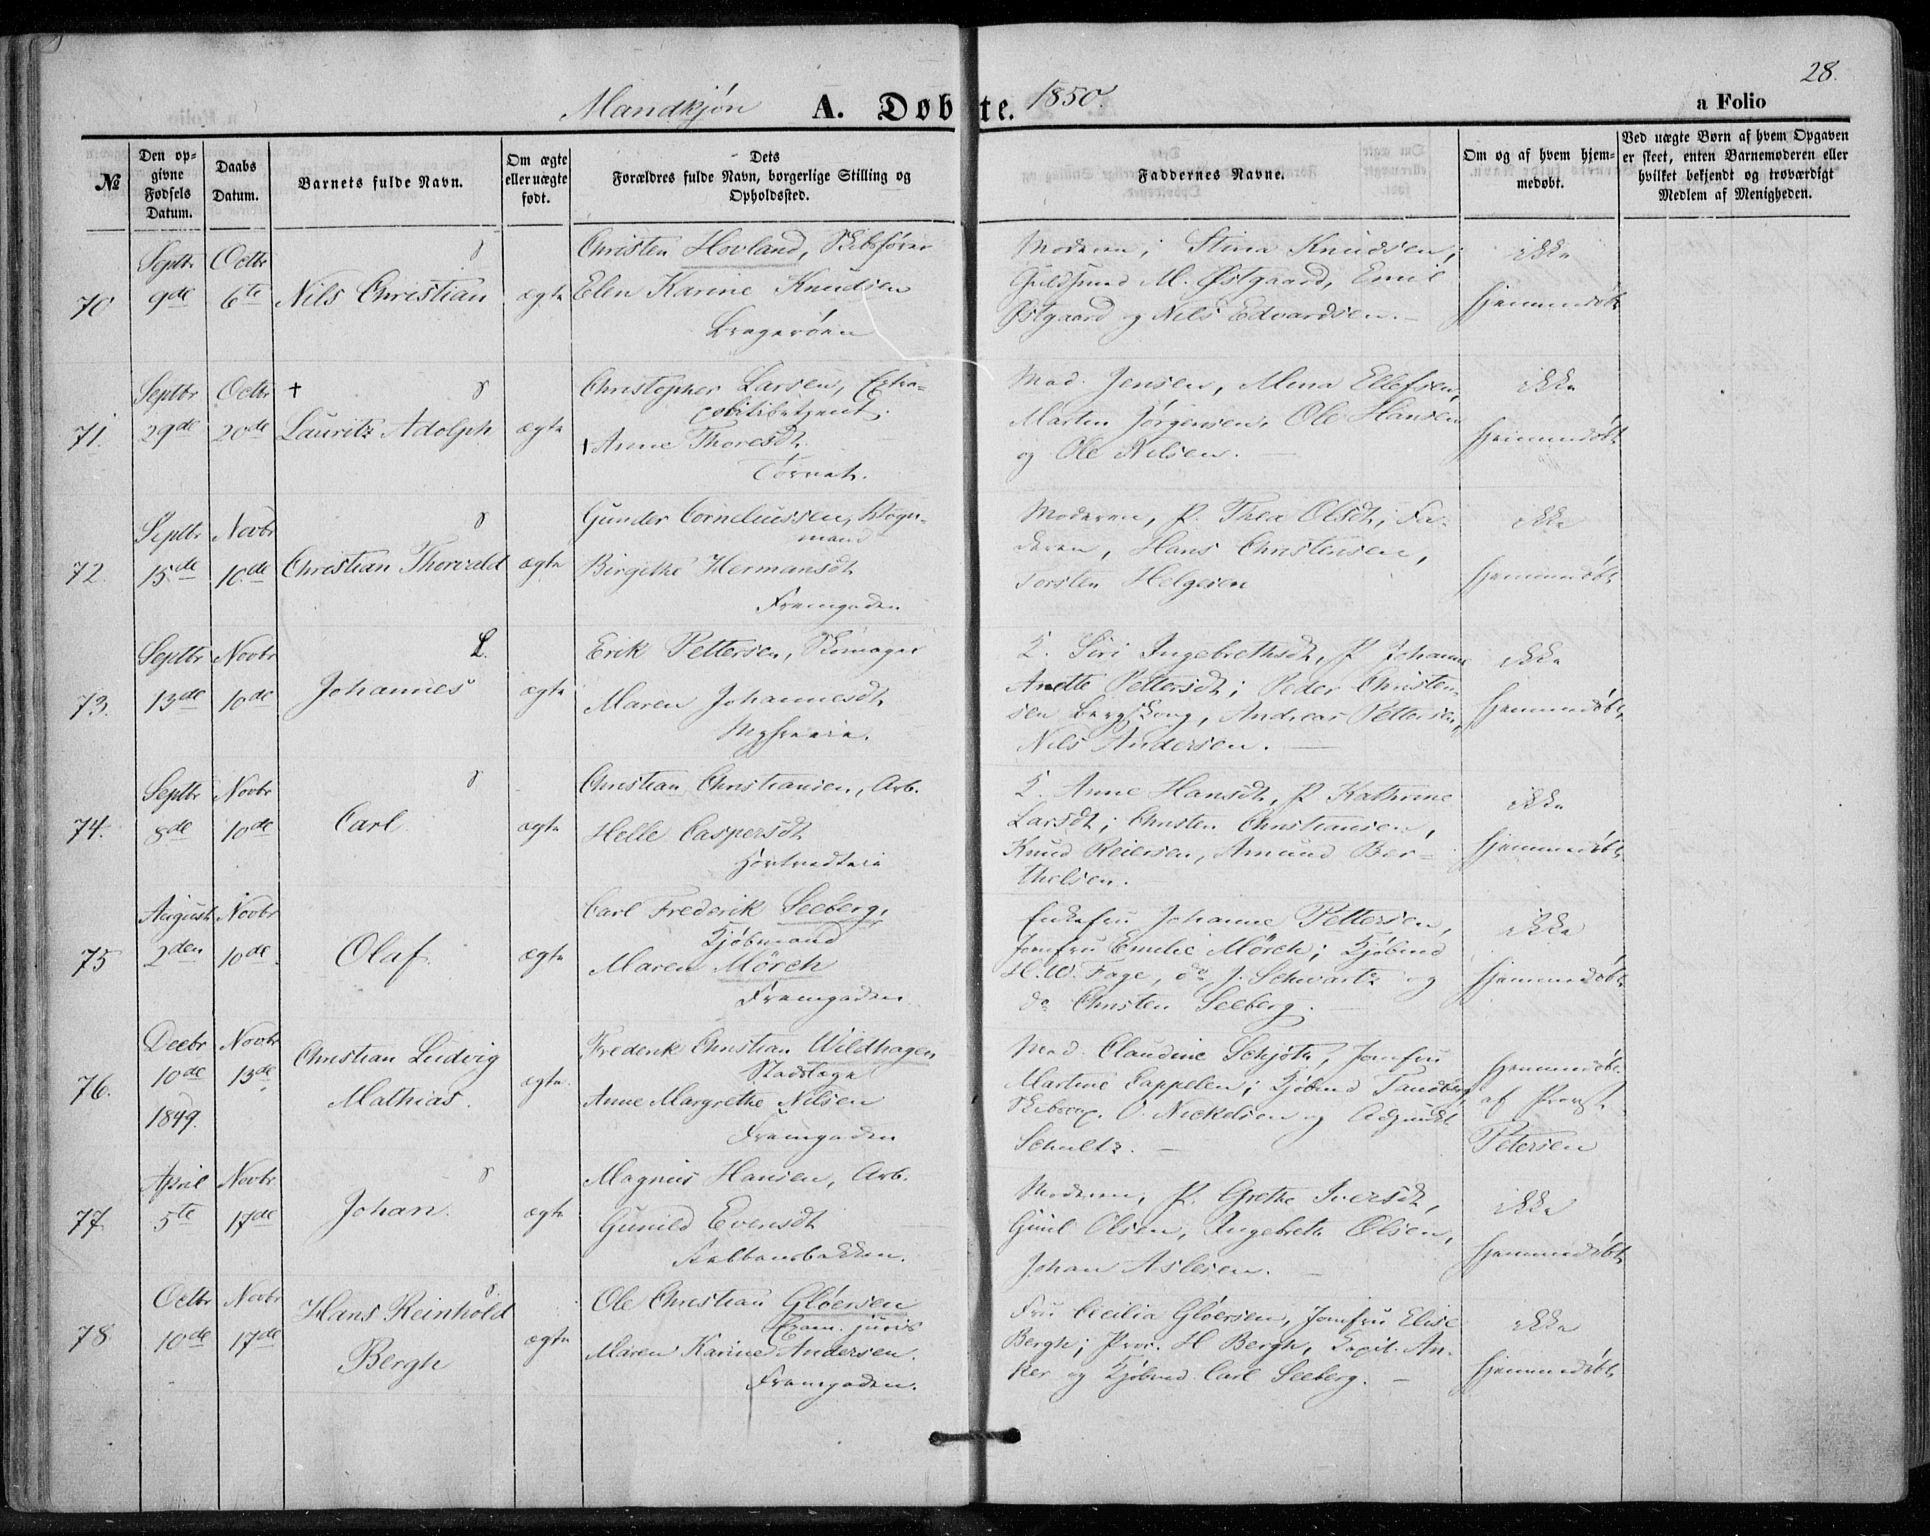 28.
Mandkjøn A. Døbte. 1850. a Folio
No
Den opgivne Fødsels Datum.
Daabs Datum.
Barnets fulde Navn.
Om ægte eller uægte født.
Dets Forældres fulde Navn, borgerlige Stilling og Opholdssted.
Faddernes Navne.
Om og af hvem hjemmedøbt.
Ved uægte Børn af hvem Opgaven er skeet, enten Barnemoderen eller hvilket bekjendt og troværdigt Medlem af Menigheden.
70
Septbr 9de
Octbr 6te
Nils Christian
ægte
Christen Hovland, Skibsfører
Elen Karine Knudsen
Bragerøen
Moderen; Stina Knudsen;
Guldsund M. Østgaard, Emil
Østgaard og Nils Edvardsen.
ikke
hjemmedøbt
71.
Septbr 29de
Octbr 20de
† Lauritz Adolph
ægte
Christopher Larsen, Extra-
politibetjent.
Anne Thoresdt.
Tørnet.
Mad. Jensen, Mina Ellefsen,
Marten Jørgensen, Ole Hansen
og Ole Nilsen.
ikke
hjemmedøbt
72.
Septbr 15de
Novbr 10de
Christian Thorvald
ægte
Gunder Corneliussen, Vogn-
mand
Birgithe Hermansdt
Framgaden
Moderen, P. Thea Olsdt; Fa-
deren, Hans Christensen,
Torsten Helgesen
ikke
hjemmedøbt
73.
Septbr 13de
Novbr 10de
Johannes
ægte
Erik Pettersen, Skomager
Maren Johannesdt
K. Siri Ingebrethsdt, P Johanne
Anette Pettersdt; Peder Christen-
sen Bergskong, Andreas Pettersen,
Nils Andersen.
ikke
hjemmedøbt
74.
Septbr 8de
Novbr 10de
Carl
ægte
Christian Christiansen, Arb.
Helle Caspersdt
K. Anne Hansdt, P Kathrine
Larsdt; Christen Christiansen,
Knud Reiersen, Amund Ber-
thelsen.
ikke
hjemmedøbt
75
August 2den
Novbr 10de
Olaf
ægte
Carl Frederik Seeberg,
Kjøbmand
Maren Mørch
Framgaden
Enkefru Johanne Pettersen,
Jomfru Emilie Mørch; Kjøbmd
H. W. Fage, do J. Schwartz og
do Christen Seeberg.
ikke
hjemmedøbt
76.
Decbr 10de 1849.
Novbr 13de
Christian Ludvig
Mathias.
ægte
Frederik Christian Wildhagen
Stadslæge
Anne Margrethe Nilsen
Framgaden
Mad. Claudine Schjøth, Jomfru
Martine Cappelen; Kjøbmd Tandberg,
Skibscap. O. Nickelsen og Adjunct
Schultz.
hjemmedøbt
af Provst
Petersen
77
April 5te
Novbr 17de
Johan.
ægte
Magnus Hansen, Arb.
Gunild Evensdt
Moderen, P. Grethe Iversdt,
Guul Olsen, Ingebreth Olsen,
Johan Aslesen.
ikke
hjemmedøbt
78
Octbr 10de
Novbr 17de
Hans Reinhold
Bergh
ægte
Ole Christian Gløersen
Exam. juris
Maren Karine Andersen.
Framgaden.
Fru Cecilia Gløersen, Jomfru Elise
Bergh; Proc. H Bergh, Capit. An-
ker og Kjøbmd. Carl Seeberg.
ikke
hjemmedøbt